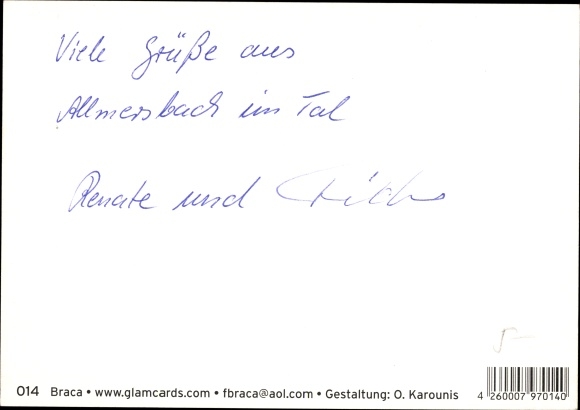 Viele Grüße aus
Allmersbach im Tal
Renate und
5-
014 Braca • www.glamcards.com • fbraca@aol.com • Gestaltung: O. Karounis
4 260007 970140